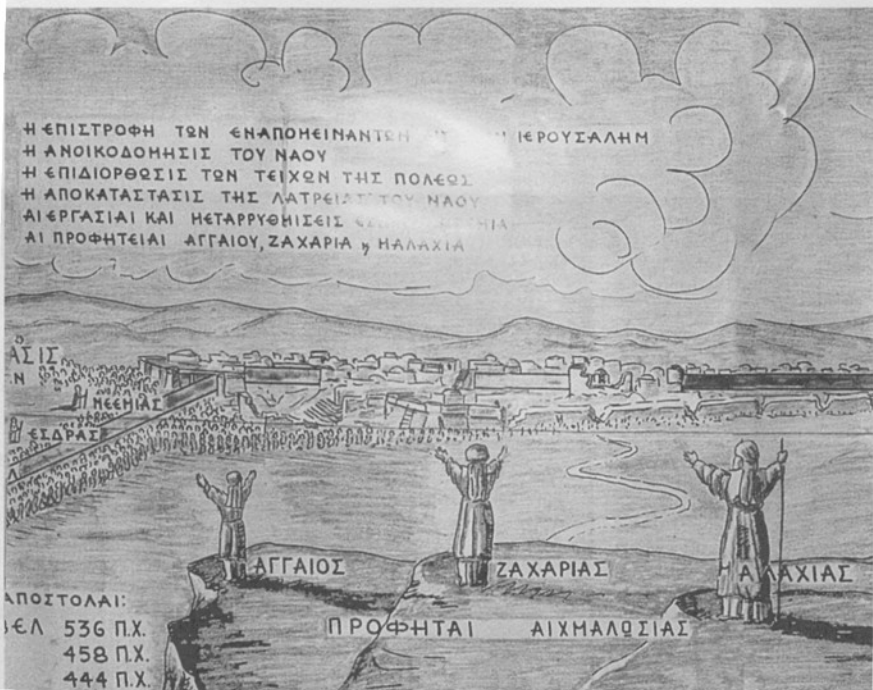 Η ΕΠΙΣΤΡΟΦΗ ΤΩΝ ΕΝΑΠΟΜΕΙΝΑΝΤΩΝ ΙΕΡΟΥΣΑΛΗΜ
Η ΑΝΟΙΚΟΔΟΜΗΣΙΣ ΤΟΥ ΝΑΟΥ
Η ΕΠΙΔΙΟΡΘΩΣΙΣ ΤΩΝ ΤΕΙΧΩΝ ΤΗΣ ΠΟΛΕΩΣ
Η ΑΠΟΚΑΤΑΣΤΑΣΙΣ ΤΗΣ ΛΑΤΡΕΙΑΣ ΤΟΥ ΝΑΟΥ
ΑΙ ΕΡΓΑΣΙΑΙ ΚΑΙ ΜΕΤΑΡΡΥΘΜΙΣΕΙΣ
ΑΙ ΠΡΟΦΗΤΕΙΑΙ ΑΓΓΑΙΟΥ, ΖΑΧΑΡΙΑ η ΜΑΛΑΧΙΑ
ΑΣΙΣ
Ν
ΝΕΕΜΙΑΣ
ΕΣΔΡΑΣ
ΑΓΓΑΙΟΣ ΖΑΧΑΡΙΑΣ ΑΛΑΧΙΑΣ
ΑΠΟΣΤΟΛΑΙ:
ΒΕΛ 536 Π.Χ. ΠΡΟΦΗΤΑΙ ΑΙΧΜΑΛΩΣΙΑΣ
458 Π.Χ.
444 Π.Χ.